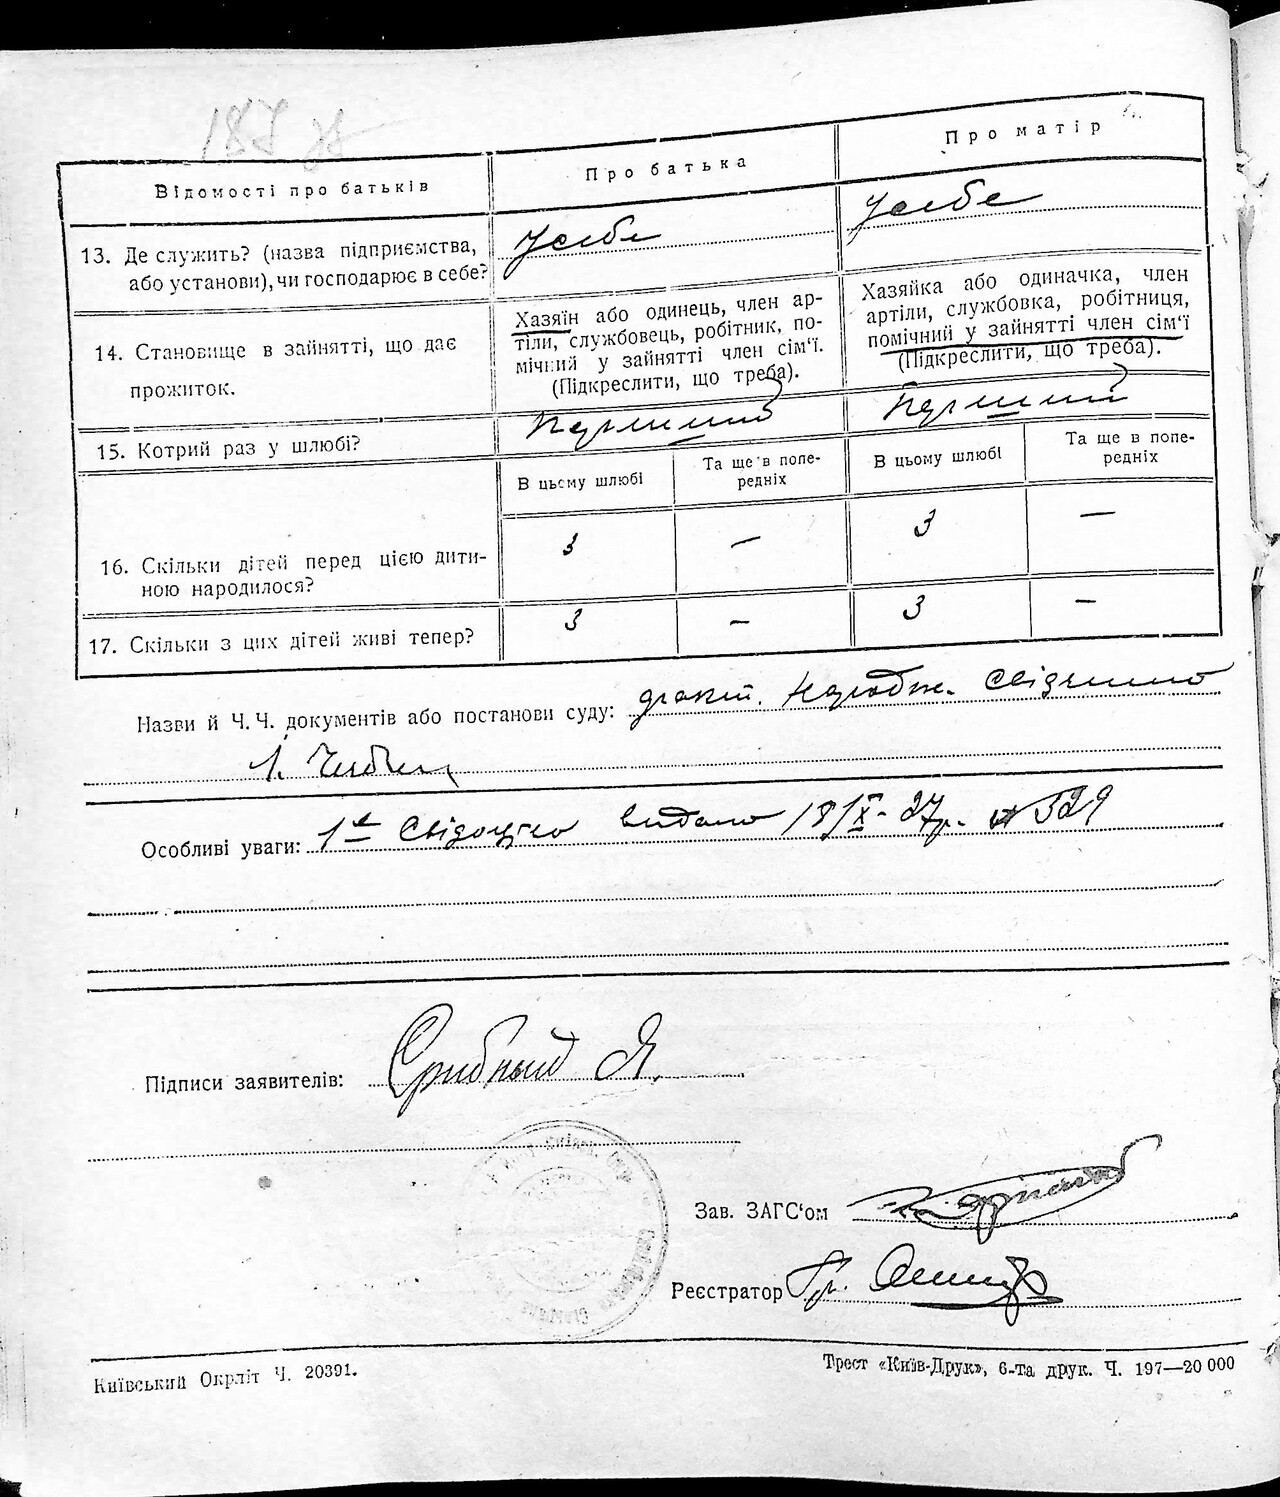 187
Відомості про батьків
Про батька
Про матір
13. Де служить? (назва підприємства,
або установи), чи господарює в себе?
У себе
У себе
14. Становище в зайнятті, що дає
прожиток.
Хазяїн або одинець, член ар-
тіли, службовець, робітник, по-
мічний у зайнятті член сім'ї.
(Підкреслити, що треба).
Хазяйка або одиначка, член
артіли, службовка, робітниця,
помічний у зайнятті член сім'ї
(Підкреслити, що треба).
15. Котрий раз у шлюбі?
В цьому шлюбі
Та ще в попе-
редніх
В цьому шлюбі
Та ще в попе-
редніх
16. Скільки дітей перед цією дити-
ною народилося?
3 — 3 —
17. Скільки з цих дітей живі тепер?
3 — 3 —
Назви й Ч. Ч. документів або постанови суду:
Особливі уваги: видано 18/X-27р. № 329
Підписи заявителів: Срибный Я.
Зав. ЗАГС'ом
Реєстратор
Київський Окрліт Ч. 20391.
Трест «Київ-Друк», 6-та друк. Ч. 197—20 000